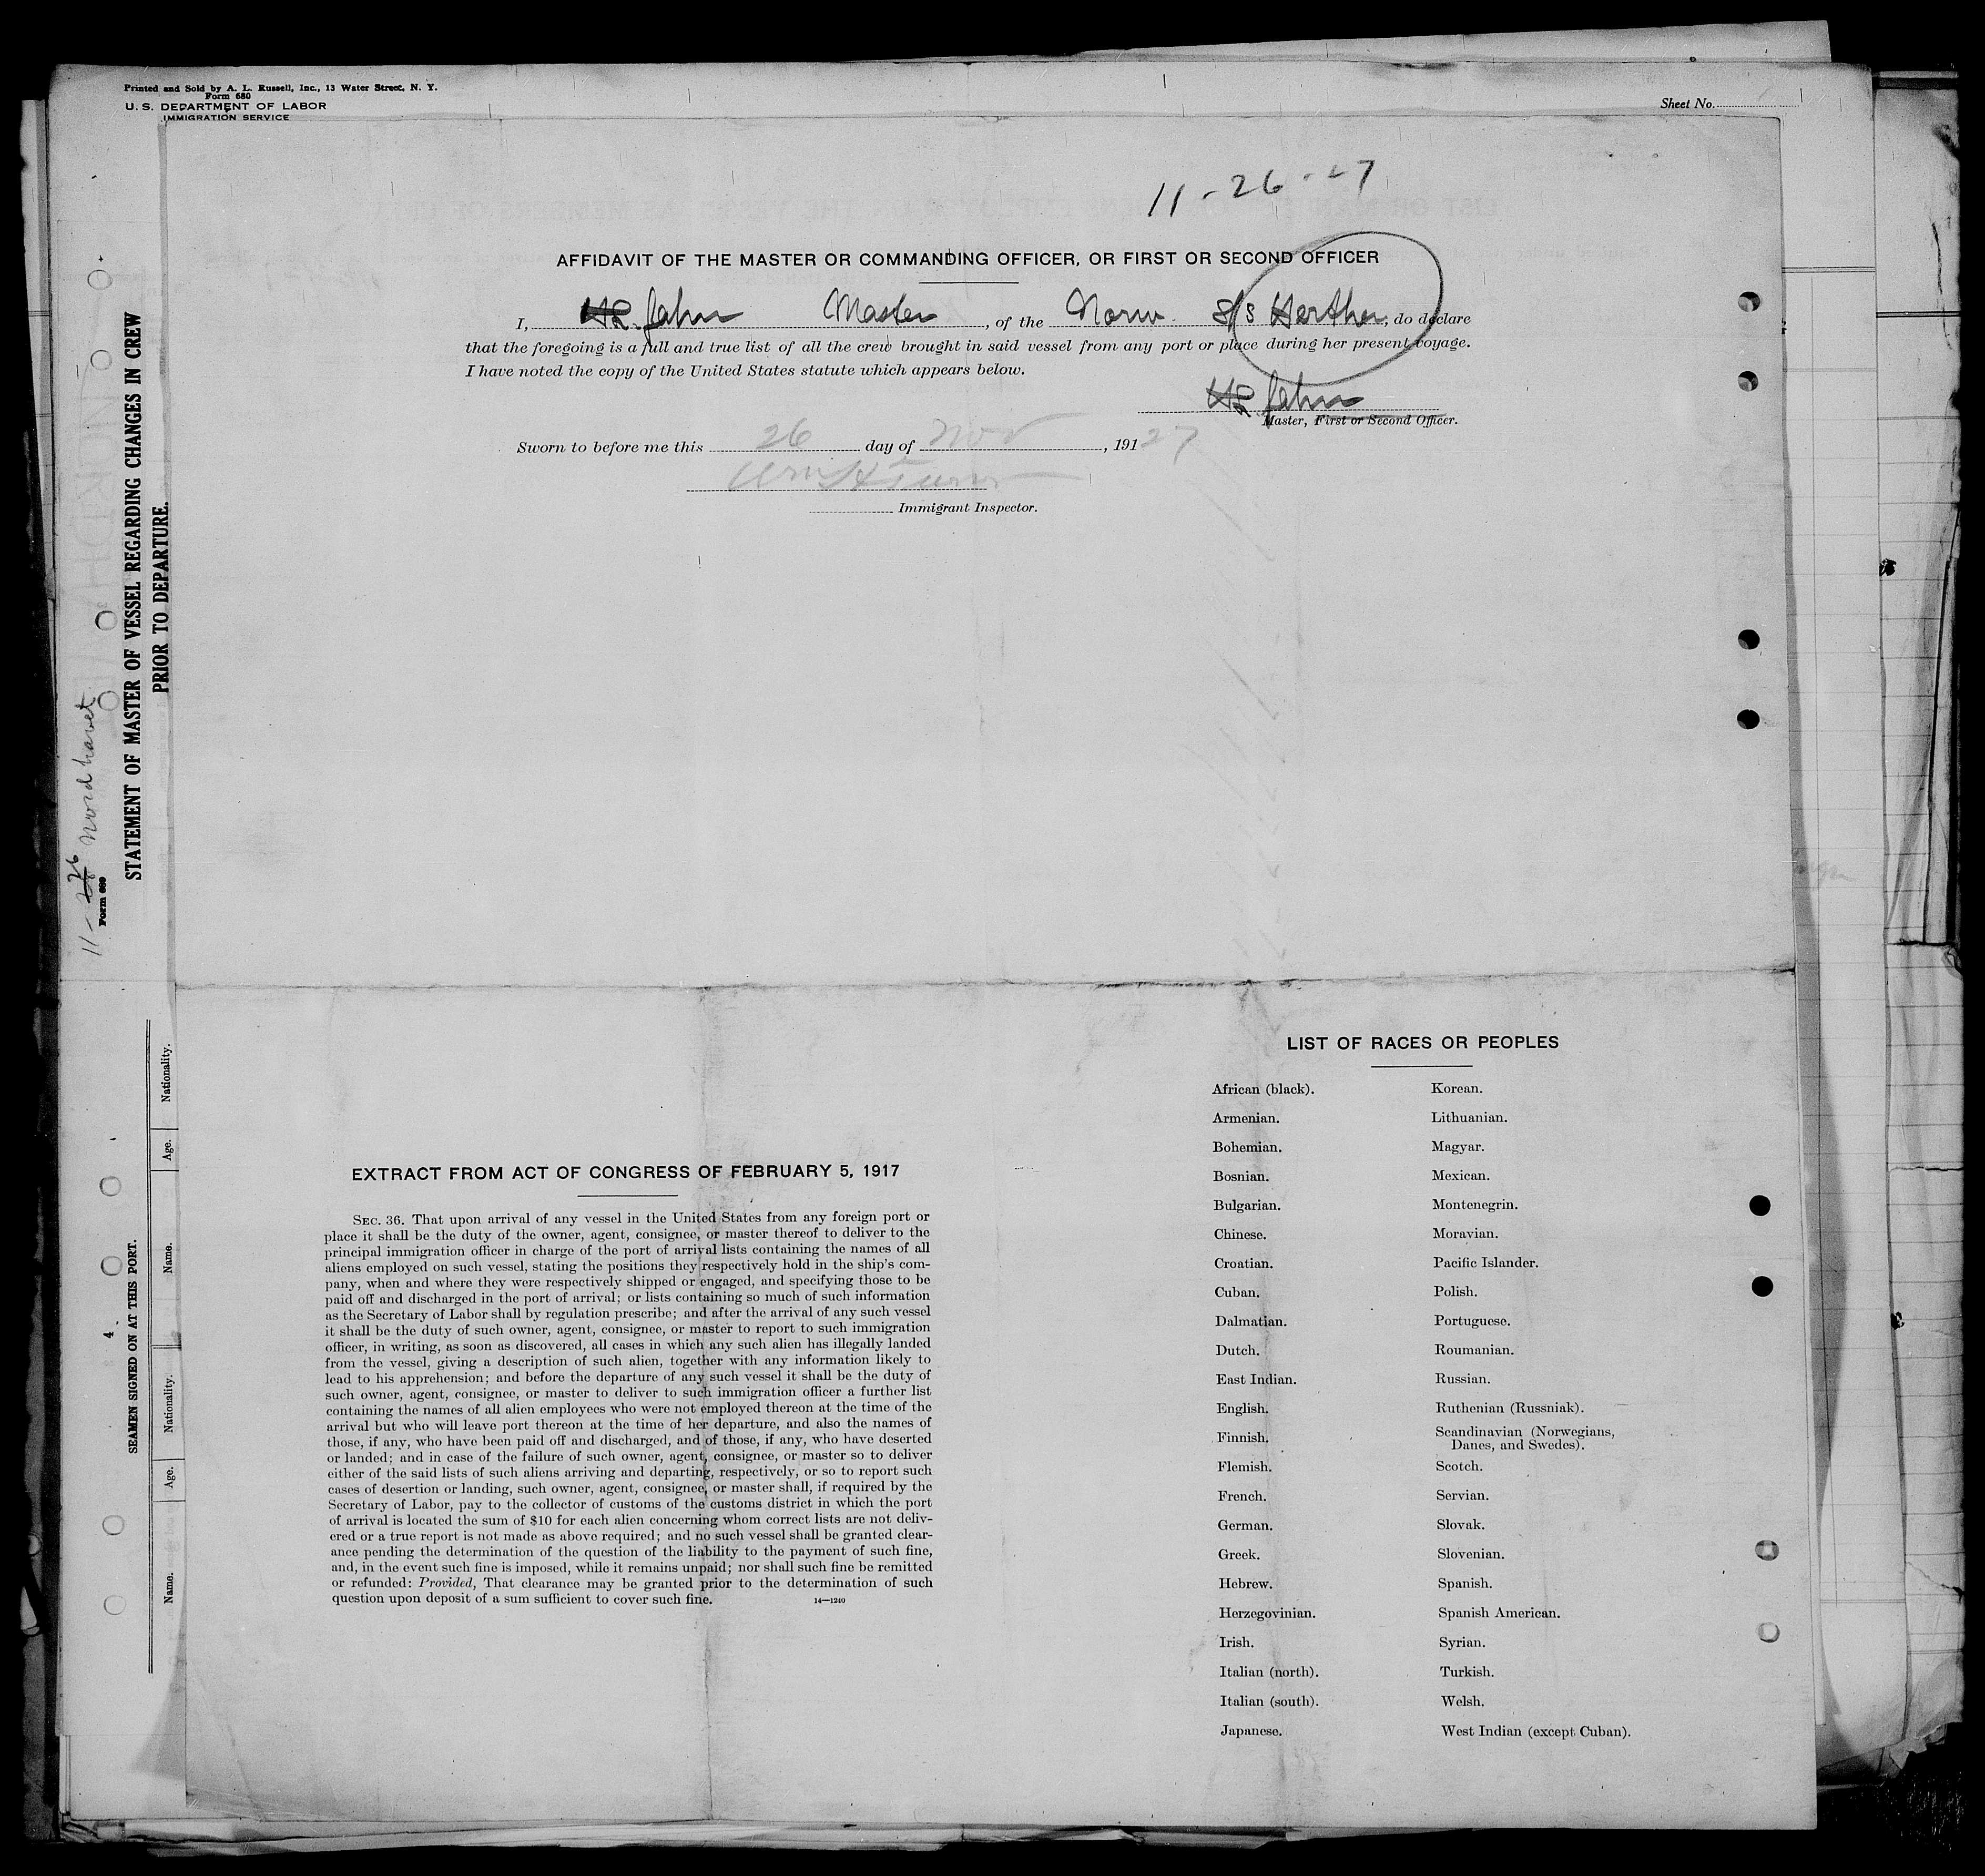 Printed and Sold by A. L. Russell, Inc., 13 Water Street, N. Y.
Form 680
U. S. DEPARTMENT OF LABOR
IMMIGRATION SERVICE
Sheet No.
11 - 26 - 27
AFFIDAVIT OF THE MASTER OR COMMANDING OFFICER, OR FIRST OR SECOND OFFICER
I, Jahn Master, of the Norw. S/S Herthe, do declare
that the foregoing is a full and true list of all the crew brought in said vessel from any port or place during her present voyage.
I have noted the copy of the United States statute which appears below.
Jahn
Master, First or Second Officer.
Sworn to before me this 26 day of Nov, 191 27
Wm H Turner
Immigrant Inspector.
11 - 26 Nordhavet
Form 680
STATEMENT OF MASTER OF VESSEL REGARDING CHANGES IN CREW
PRIOR TO DEPARTURE.
4
SEAMEN SIGNED ON AT THIS PORT.
Name. Age. Nationality. Name. Age. Nationality.
EXTRACT FROM ACT OF CONGRESS OF FEBRUARY 5, 1917
SEC. 36. That upon arrival of any vessel in the United States from any foreign port or
place it shall be the duty of the owner, agent, consignee, or master thereof to deliver to the
principal immigration officer in charge of the port of arrival lists containing the names of all
aliens employed on such vessel, stating the positions they respectively hold in the ship's com-
pany, when and where they were respectively shipped or engaged, and specifying those to be
paid off and discharged in the port of arrival; or lists containing so much of such information
as the Secretary of Labor shall by regulation prescribe; and after the arrival of any such vessel
it shall be the duty of such owner, agent, consignee, or master to report to such immigration
officer, in writing, as soon as discovered, all cases in which any such alien has illegally landed
from the vessel, giving a description of such alien, together with any information likely to
lead to his apprehension; and before the departure of any such vessel it shall be the duty of
such owner, agent, consignee, or master to deliver to such immigration officer a further list
containing the names of all alien employees who were not employed thereon at the time of the
arrival but who will leave port thereon at the time of her departure, and also the names of
those, if any, who have been paid off and discharged, and of those, if any, who have deserted
or landed; and in case of the failure of such owner, agent, consignee, or master so to deliver
either of the said lists of such aliens arriving and departing, respectively, or so to report such
cases of desertion or landing, such owner, agent, consignee, or master shall, if required by the
Secretary of Labor, pay to the collector of customs of the customs district in which the port
of arrival is located the sum of $10 for each alien concerning whom correct lists are not deliv-
ered or a true report is not made as above required; and no such vessel shall be granted clear-
ance pending the determination of the question of the liability to the payment of such fine,
and, in the event such fine is imposed, while it remains unpaid; nor shall such fine be remitted
or refunded: Provided, That clearance may be granted prior to the determination of such
question upon deposit of a sum sufficient to cover such fine. 14—1240
LIST OF RACES OR PEOPLES
African (black).
Armenian.
Bohemian.
Bosnian.
Bulgarian.
Chinese.
Croatian.
Cuban.
Dalmatian.
Dutch.
East Indian.
English.
Finnish.
Flemish.
French.
German.
Greek.
Hebrew.
Herzegovinian.
Irish.
Italian (north).
Italian (south).
Japanese.
Korean.
Lithuanian.
Magyar.
Mexican.
Montenegrin.
Moravian.
Pacific Islander.
Polish.
Portuguese.
Roumanian.
Russian.
Ruthenian (Russniak).
Scandinavian (Norwegians,
Danes, and Swedes).
Scotch.
Servian.
Slovak.
Slovenian.
Spanish.
Spanish American.
Syrian.
Turkish.
Welsh.
West Indian (except Cuban).